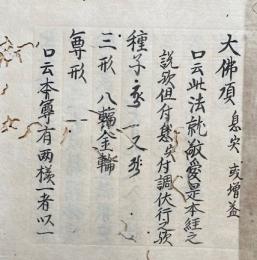 大佛頂 息災 或增益
口云此法就敬愛是本經之
說歟但付息災付調伏行之歟
種子 一又
三形 八輻金輪
尊形 一
口云本尊有兩樣一者以一